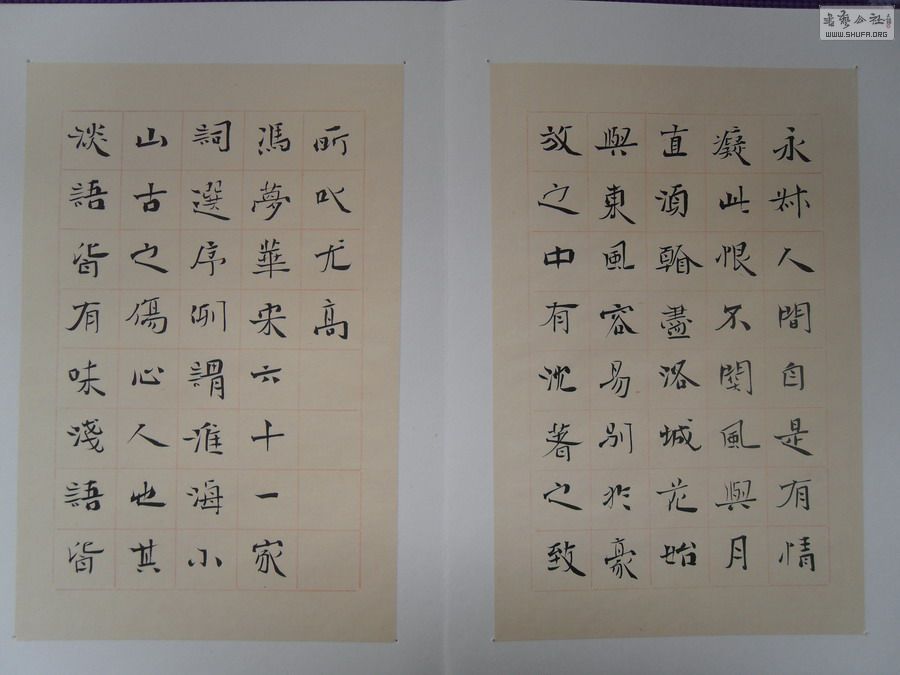 永叔人間自是有情
癡此恨不關風與月
直須看盡洛城花始
與東風容易別於豪
放之中有沈著之致
所以尤高
馮夢華宋六十一家
詞選序例謂淮海小
山古之傷心人也其
淡語皆有味淺語皆
書藝公社
WWW.SHUFA.ORG